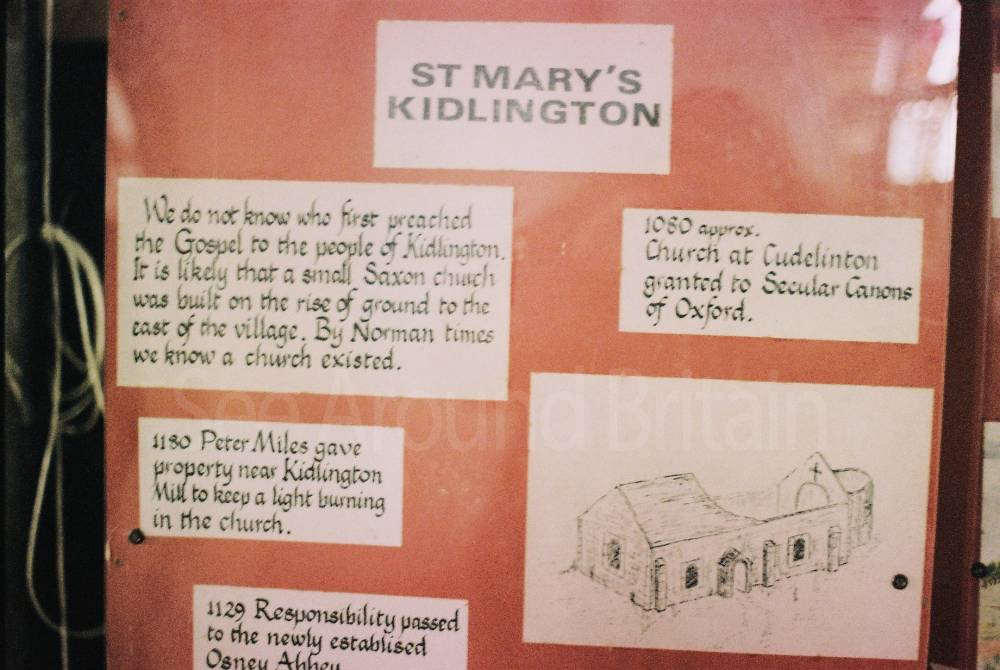 ST MARY'S
KIDLINGTON
We do not know who first preached
the Gospel to the people of Kidlington.
It is likely that a small Saxon church
was built on the rise of ground to the
east of the village. By Norman times
we know a church existed.
1080 approx.
Church at Cudelinton
granted to Secular Canons
of Oxford.
1180 Peter Miles gave
property near Kidlington
Mill to keep a light burning
in the church.
1129 Responsibility passed
to the newly establised
Osney Abbey
See Around Britain